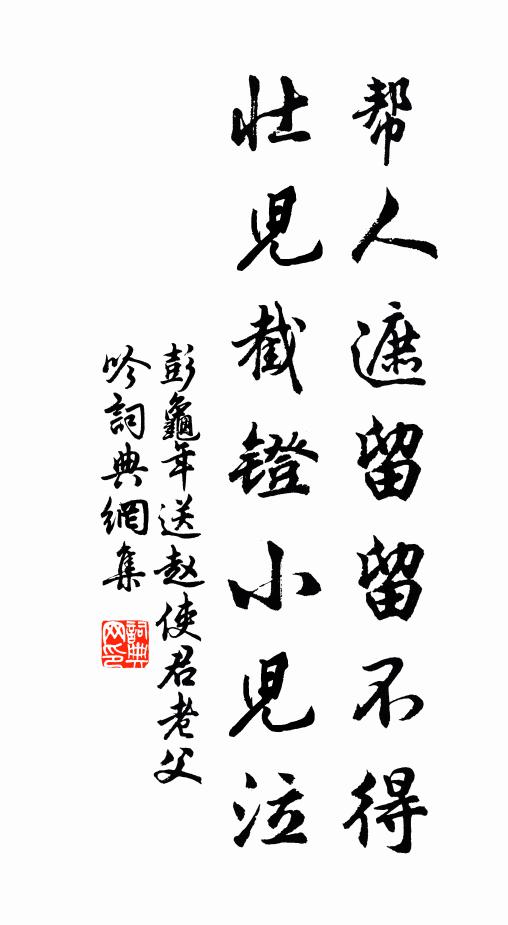 帮人遮留留不得
壮兒截鐙小兒泣
彭龜年送赵使君老父
吟詞典網集
詞典
网印